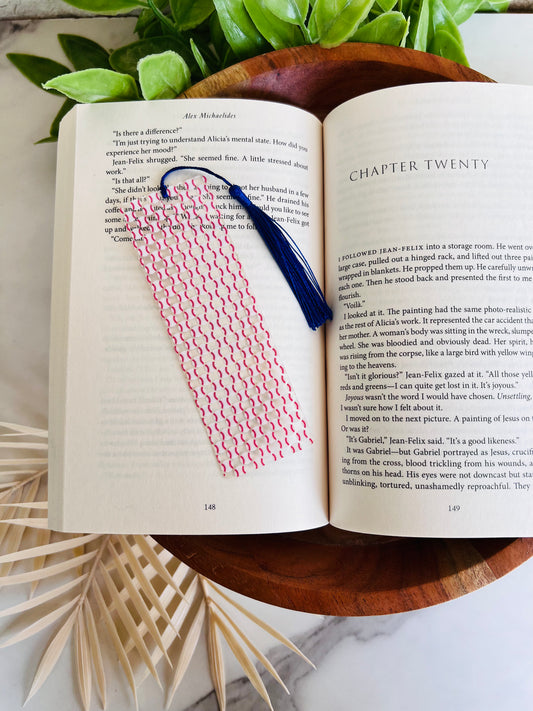 Alex Michaelides
"Is there a difference?"
"I'm just trying to understand Alicia's mental state. How did you
experience her mood?"
Jean-Felix shrugged. "She seemed fine. A little stressed about
work."
"Is that all?"
"She didn't look to her husband in a few
days, if He drained
his
coffee like to see
some a Jean-Felix
up and
"Come
148
CHAPTER TWENTY
I FOLLOWED JEAN-FELIX into a storage room. He went over
large case, pulled out a hinged rack, and lifted out three pai
wrapped in blankets. He propped them up. He carefully unw
each one. Then he stood back and presented the first to me
flourish.
"Voilà."
I looked at it. The painting had the same photo-realistic
as the rest of Alicia's work. It represented the car accident tha
her mother. A woman's body was sitting in the wreck, slumpe
wheel. She was bloodied and obviously dead. Her spirit, h
was rising from the corpse, like a large bird with yellow wing
ing to the heavens.
"Isn't it glorious?" Jean-Felix gazed at it. "All those yell
reds and greens—I can quite get lost in it. It's joyous."
Joyous wasn't the word I would have chosen. Unsettling,
I wasn't sure how I felt about it.
I moved on to the next picture. A painting of Jesus on t
Or was it?
"It's Gabriel," Jean-Felix said. "It's a good likeness."
It was Gabriel—but Gabriel portrayed as Jesus, crucifi
ing from the cross, blood trickling from his wounds, a
thorns on his head. His eyes were not downcast but star
unblinking, tortured, unashamedly reproachful. They
149